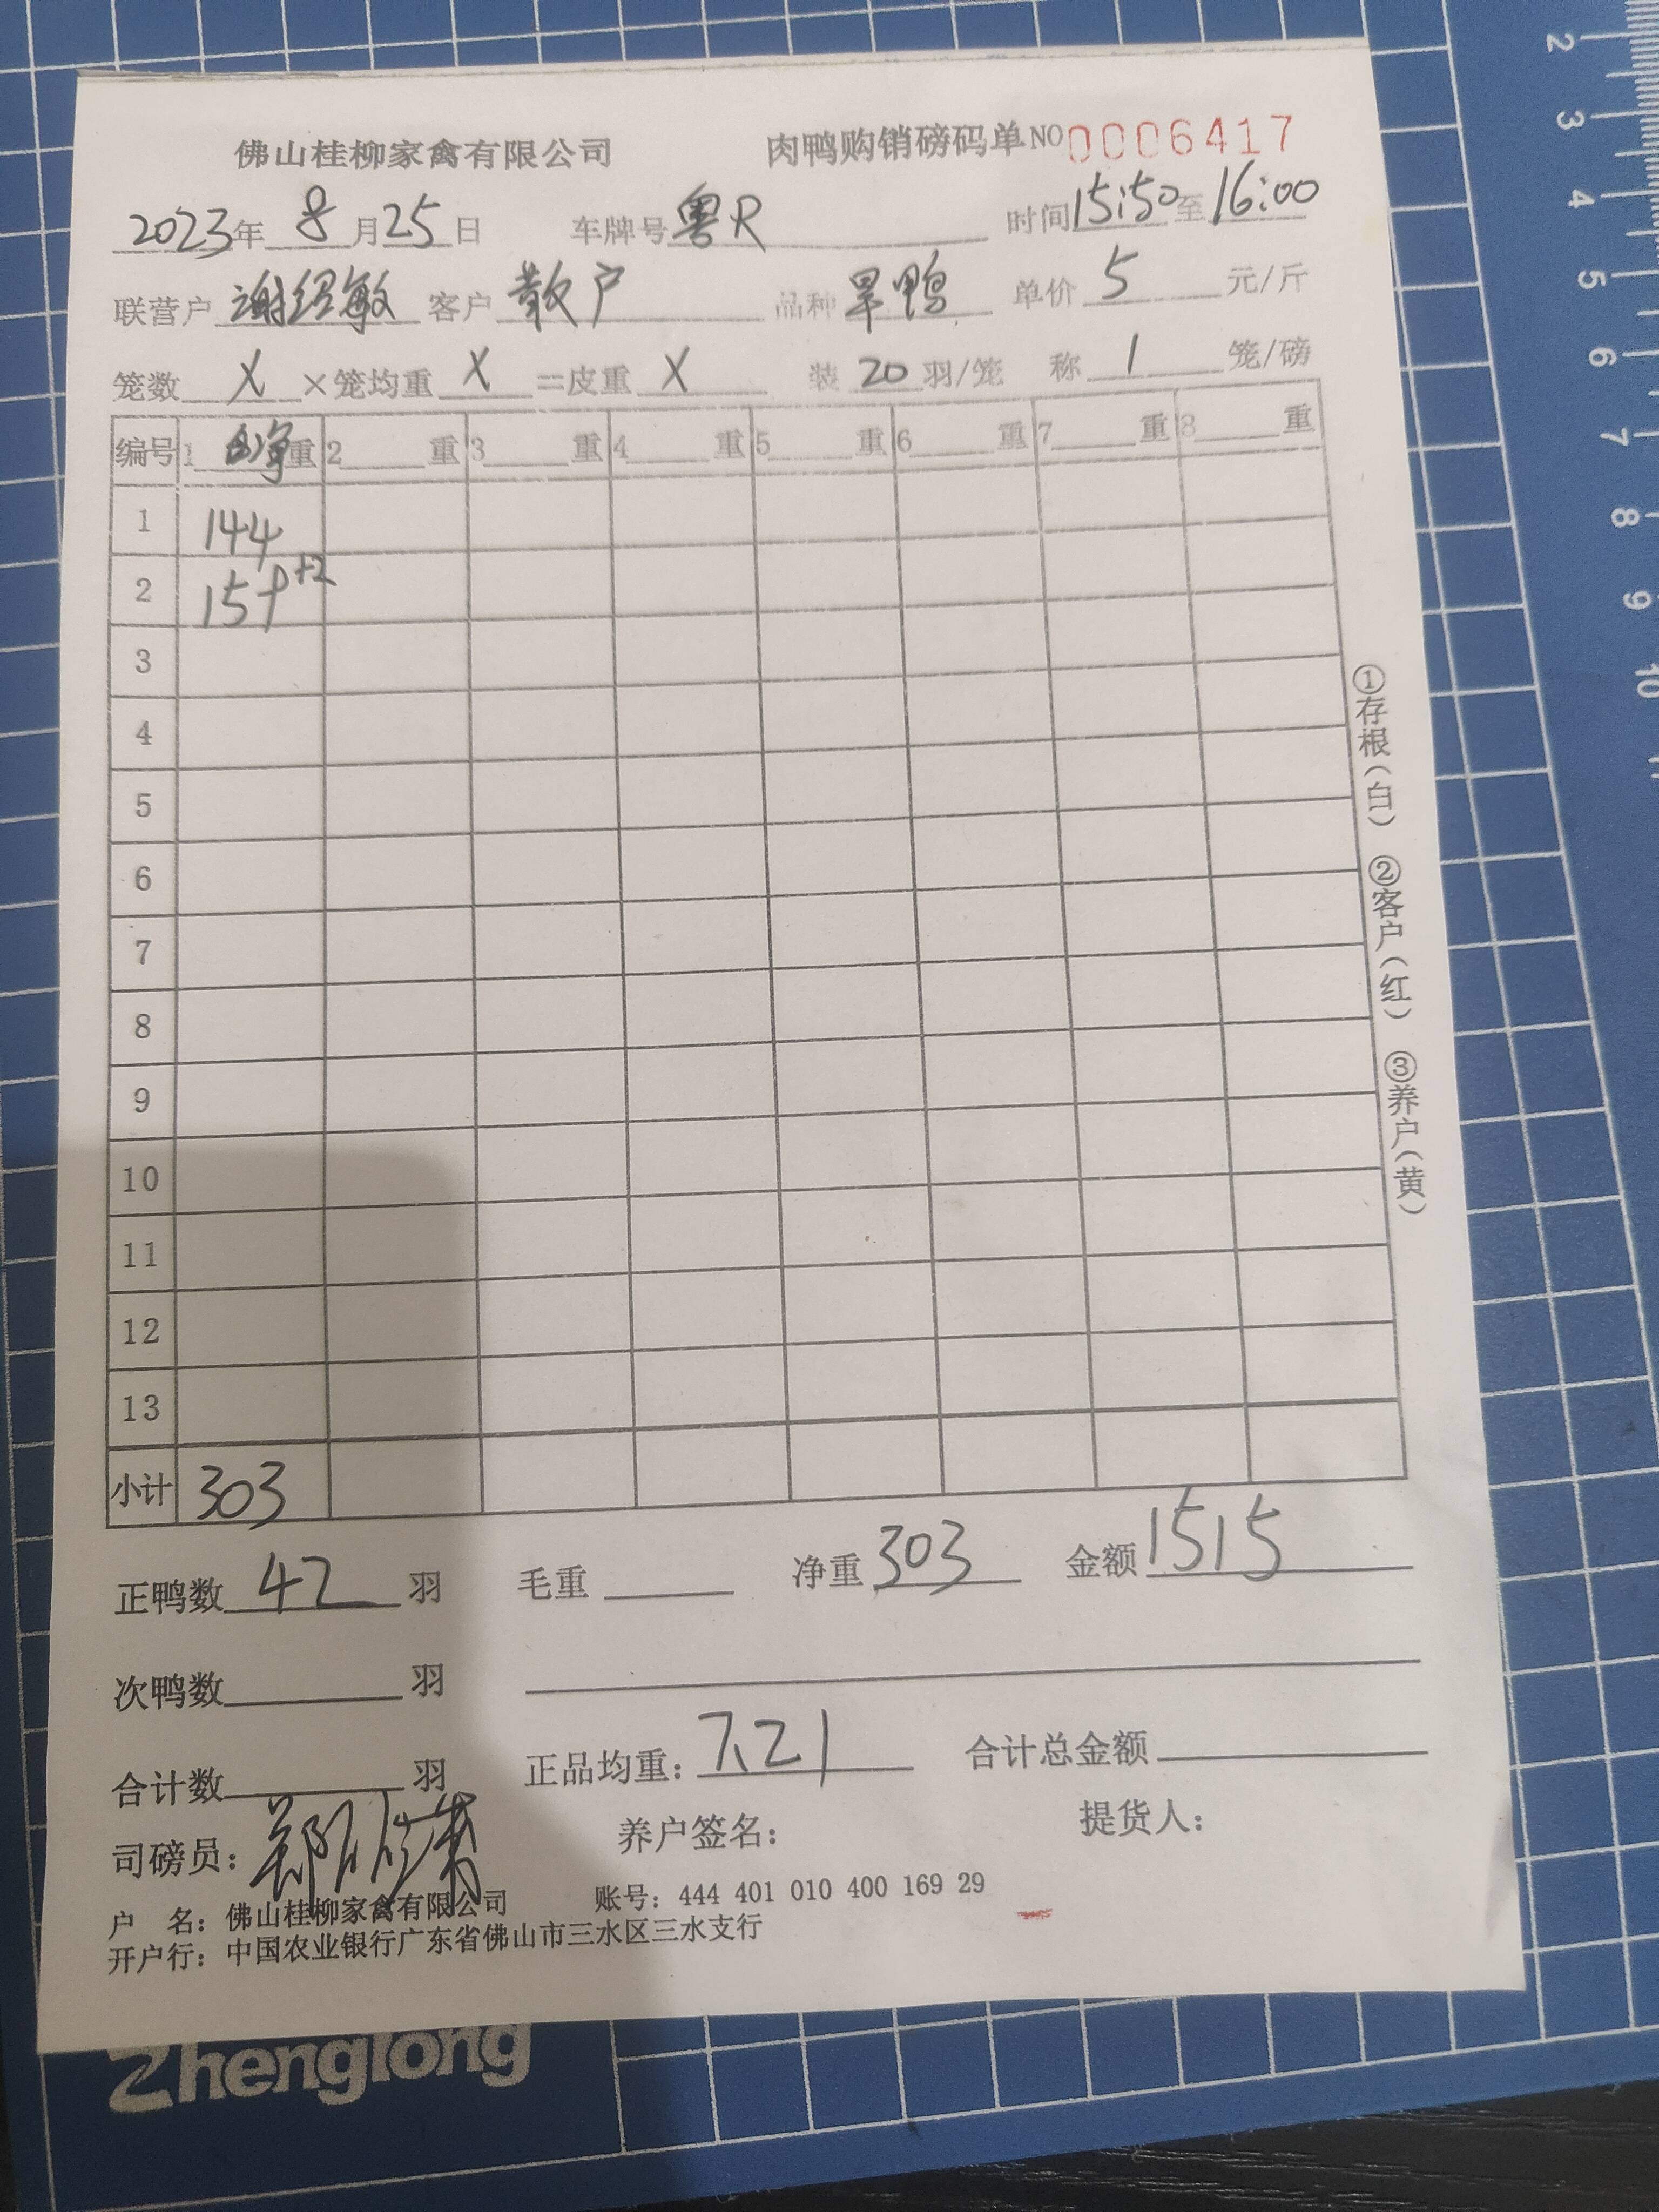 佛山桂柳家禽有限公司 肉鸭购销磅码单NO 0006417
2023年 8月25日 车牌号 粤R 时间15:50至16:00
联营户 谢绍敏 客户 散户 品种 旱鸭 单价 5 元/斤
笼数 X ×笼均重 X =皮重 X 装 20 羽/笼 称 1 笼/磅
编号 1 净重 2 重 3 重 4 重 5 重 6 重 7 重 8 重
1 144
2 159 +2
3
4
5
6
7
8
9
10
11
12
13
小计 303
正鸭数 42 羽 毛重 净重 303 金额 1515
次鸭数 羽
合计数 羽 正品均重: 7.21 合计总金额
司磅员: 养户签名: 提货人:
户 名: 佛山桂柳家禽有限公司 账号: 444 401 010 400 169 29
开户行: 中国农业银行广东省佛山市三水区三水支行
①存根(白) ②客户(红) ③养户(黄)
2
3
4
5
6
7
8
9
10
Zhenglong